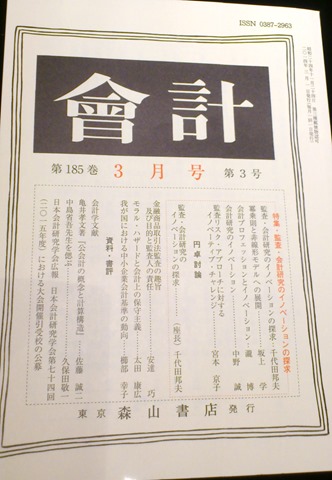 ISSN 0387-2963
會計
第185巻 3月号 第3号
特集・監査・会計研究のイノベーションの探求
監査・会計研究のイノベーションの探求 千代田邦夫
会計プロフェッションとイノベーション 瀧 博
会計研究のイノベーション 中野 誠
円卓討論
監査リスク・アプローチに対する
イノベーティブ・チャレンジ 宮本 京子
監査・会計研究の
イノベーションの探求 (座長) 千代田邦夫
金融商品取引法監査の趣旨
及び目的と監査人の責任 安達 巧
モラル・ハザードと会計上の保守主義 太田 康広
我が国における中小企業会計基準の動向 櫛部 幸子
資料・書評
会計学文献
亀井孝文著『公会計の概念と計算構造』 佐藤 誠二
中島省吾先生を偲ぶ 久保田敬一
日本会計研究学会広報 日本会計研究学会第七十四回
(二〇一五年度)における大会開催引受校の公募
東京 森山書店 発行